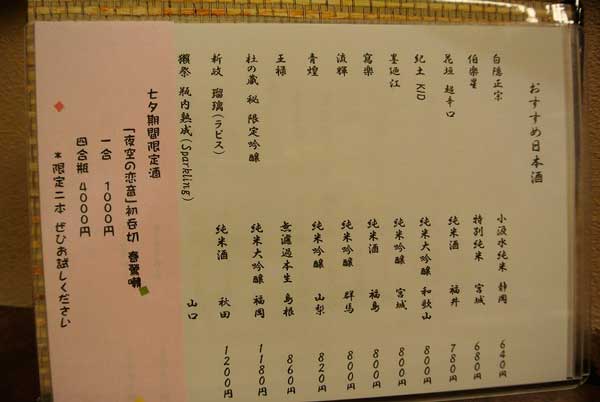 おすすめ日本酒
白隠正宗 小汲水純米 静岡 640円
伯楽星 特別純米 宮城 680円
花垣 超辛口 純米酒 福井 780円
紀土 KID 純米大吟醸 和歌山 800円
墨廼江 純米吟醸 宮城 800円
寫樂 純米酒 福島 800円
流輝 純米吟醸 群馬 800円
青煌 純米吟醸 山梨 820円
王祿 無濾過本生 島根 860円
杜の蔵 秘 限定吟醸 純米大吟醸 福岡 1180円
新政 瑠璃(ラピス) 純米酒 秋田 1200円
獺祭 瓶内熟成(Sparkling) 山口
七夕期間限定酒
「夜空の恋音」初呑切 春鶯囀
一合 1000円
四合瓶 4000円
*限定二本 ぜひお試しください